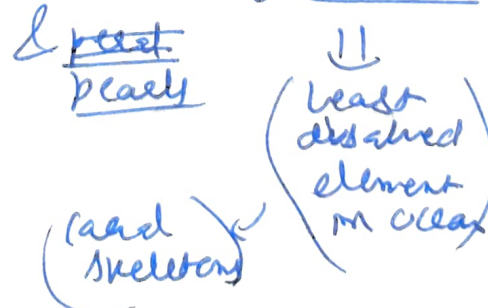 &
pearls
(least
dissolved
element
in ocean)
(coral
skeletons)